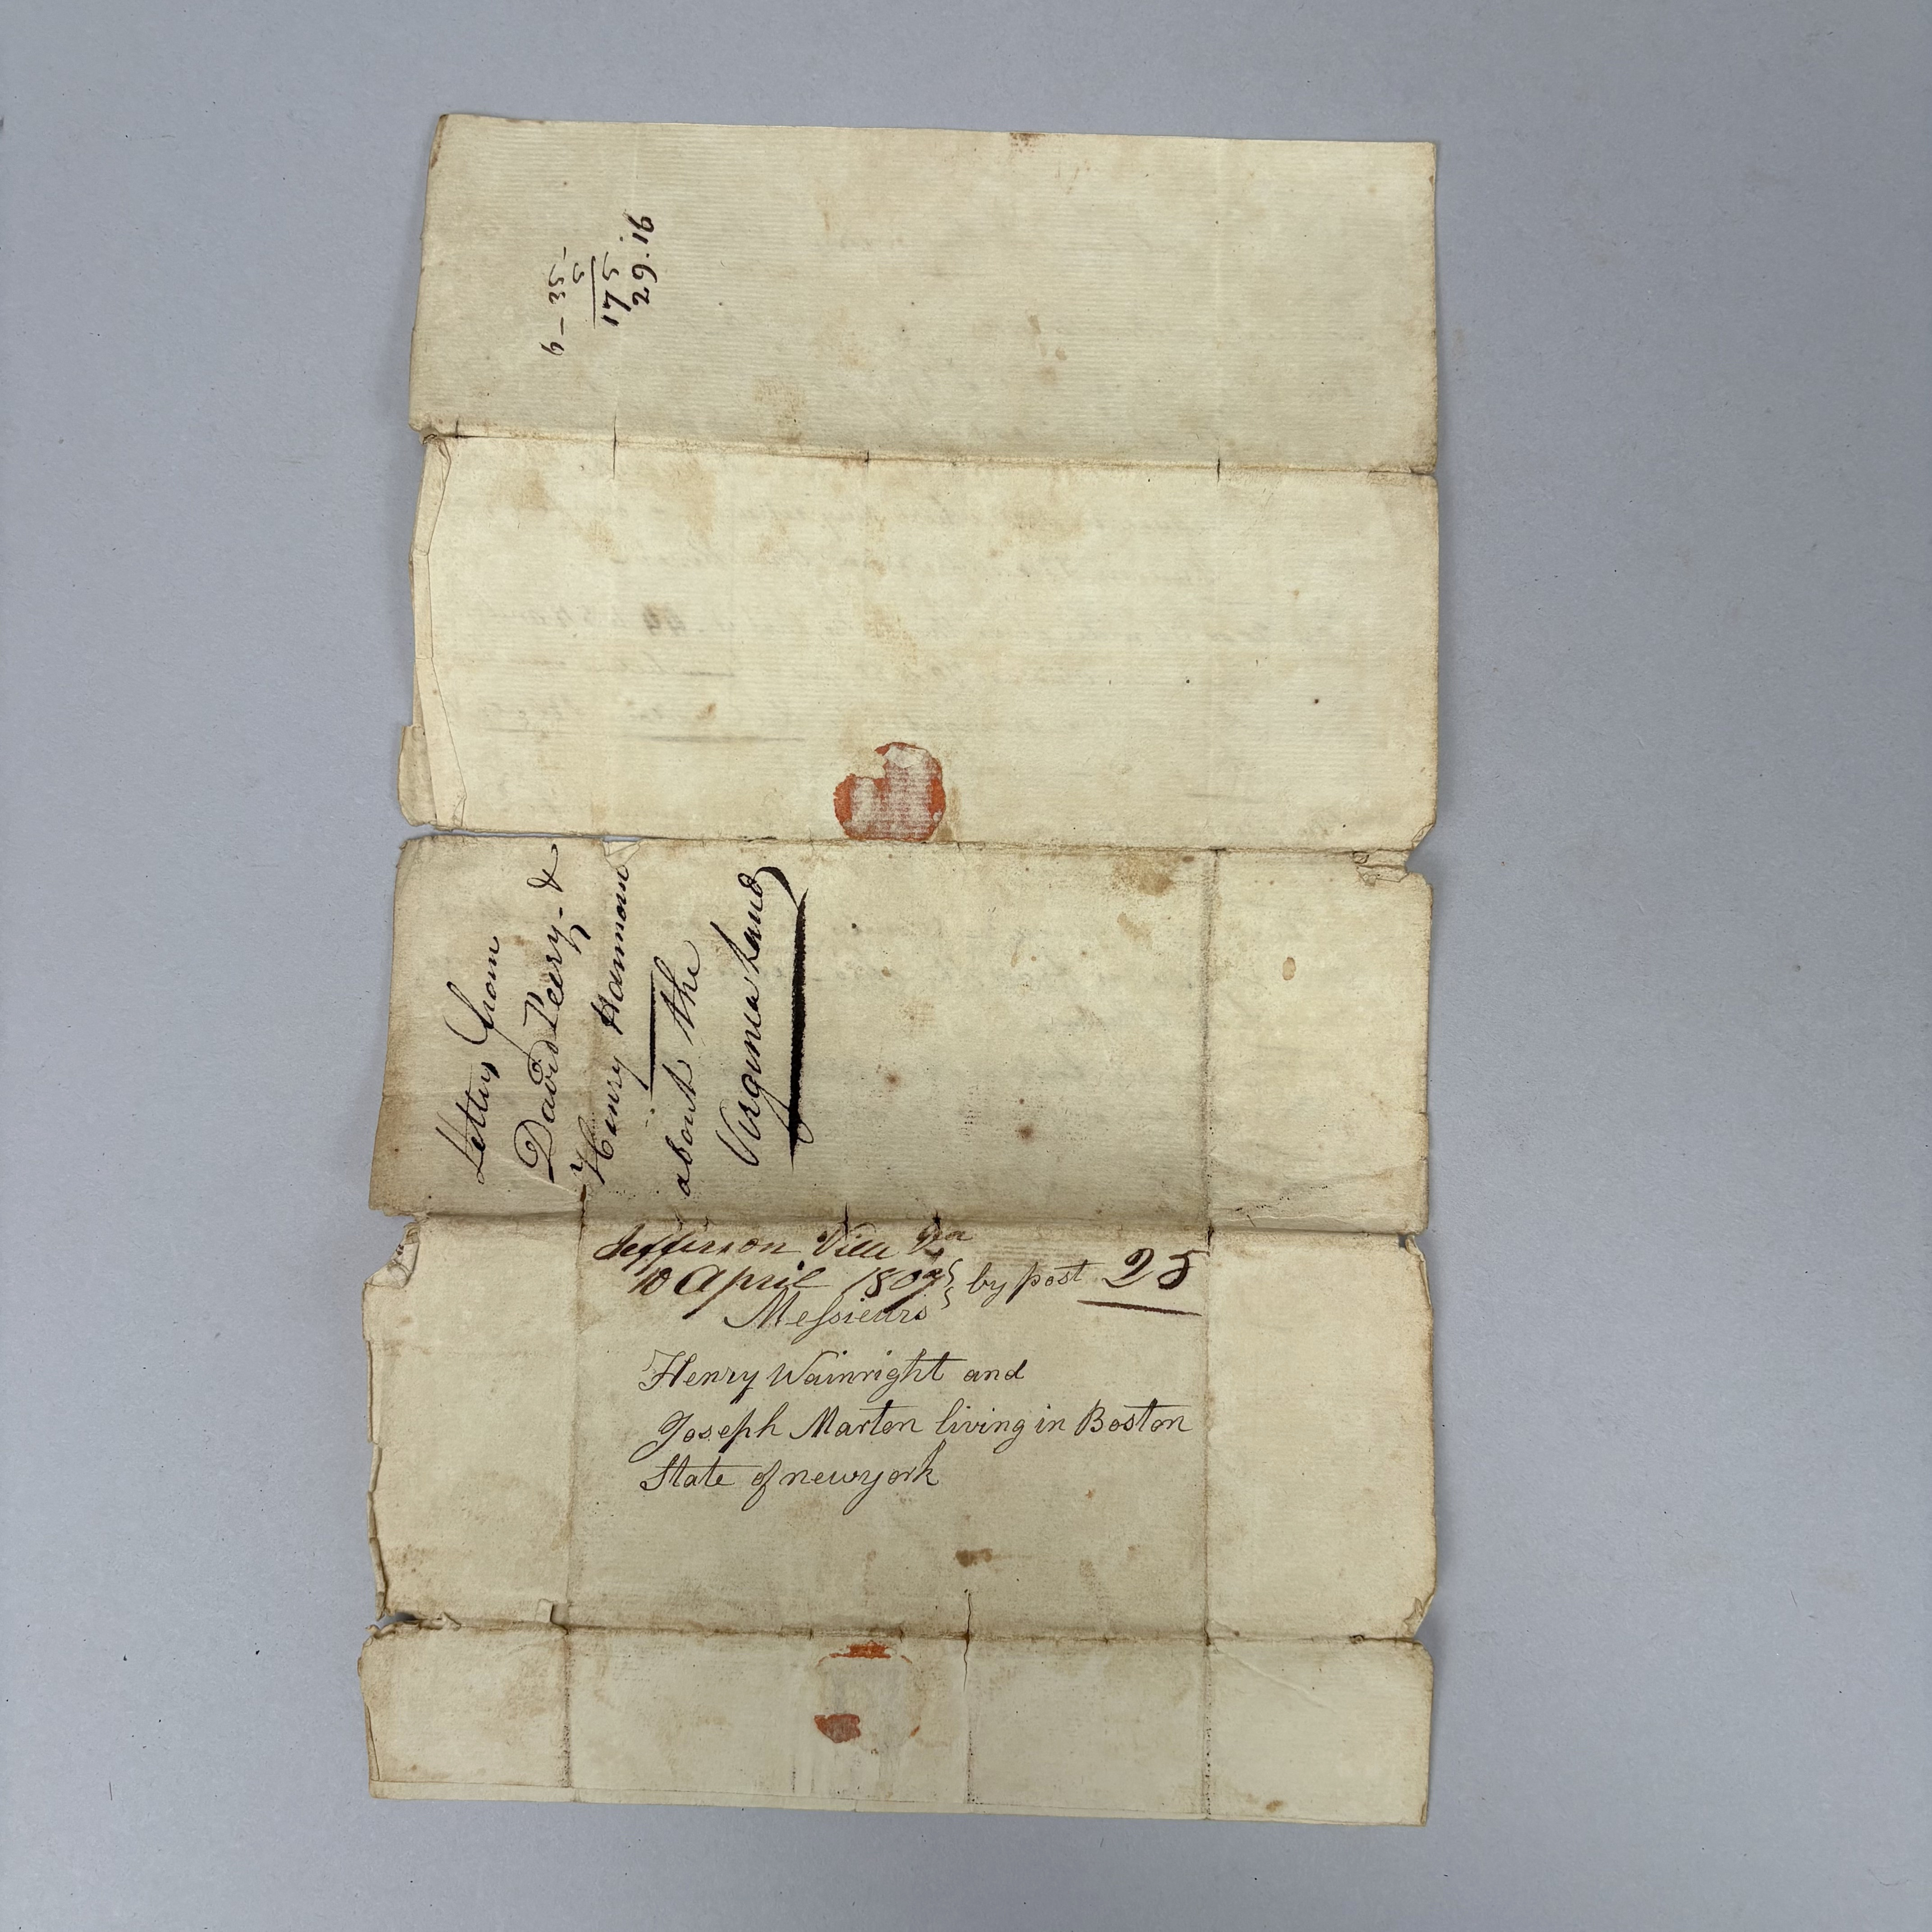 6 – 35 –
5
175
29.16
Letters from
David Peery &
Henry Hammon
about the
Virginia Land
Jefferson Ville Va
10 April 1807 by post 25
Messieurs
Henry Wainright and
Joseph Marten living in Boston
State of newyork